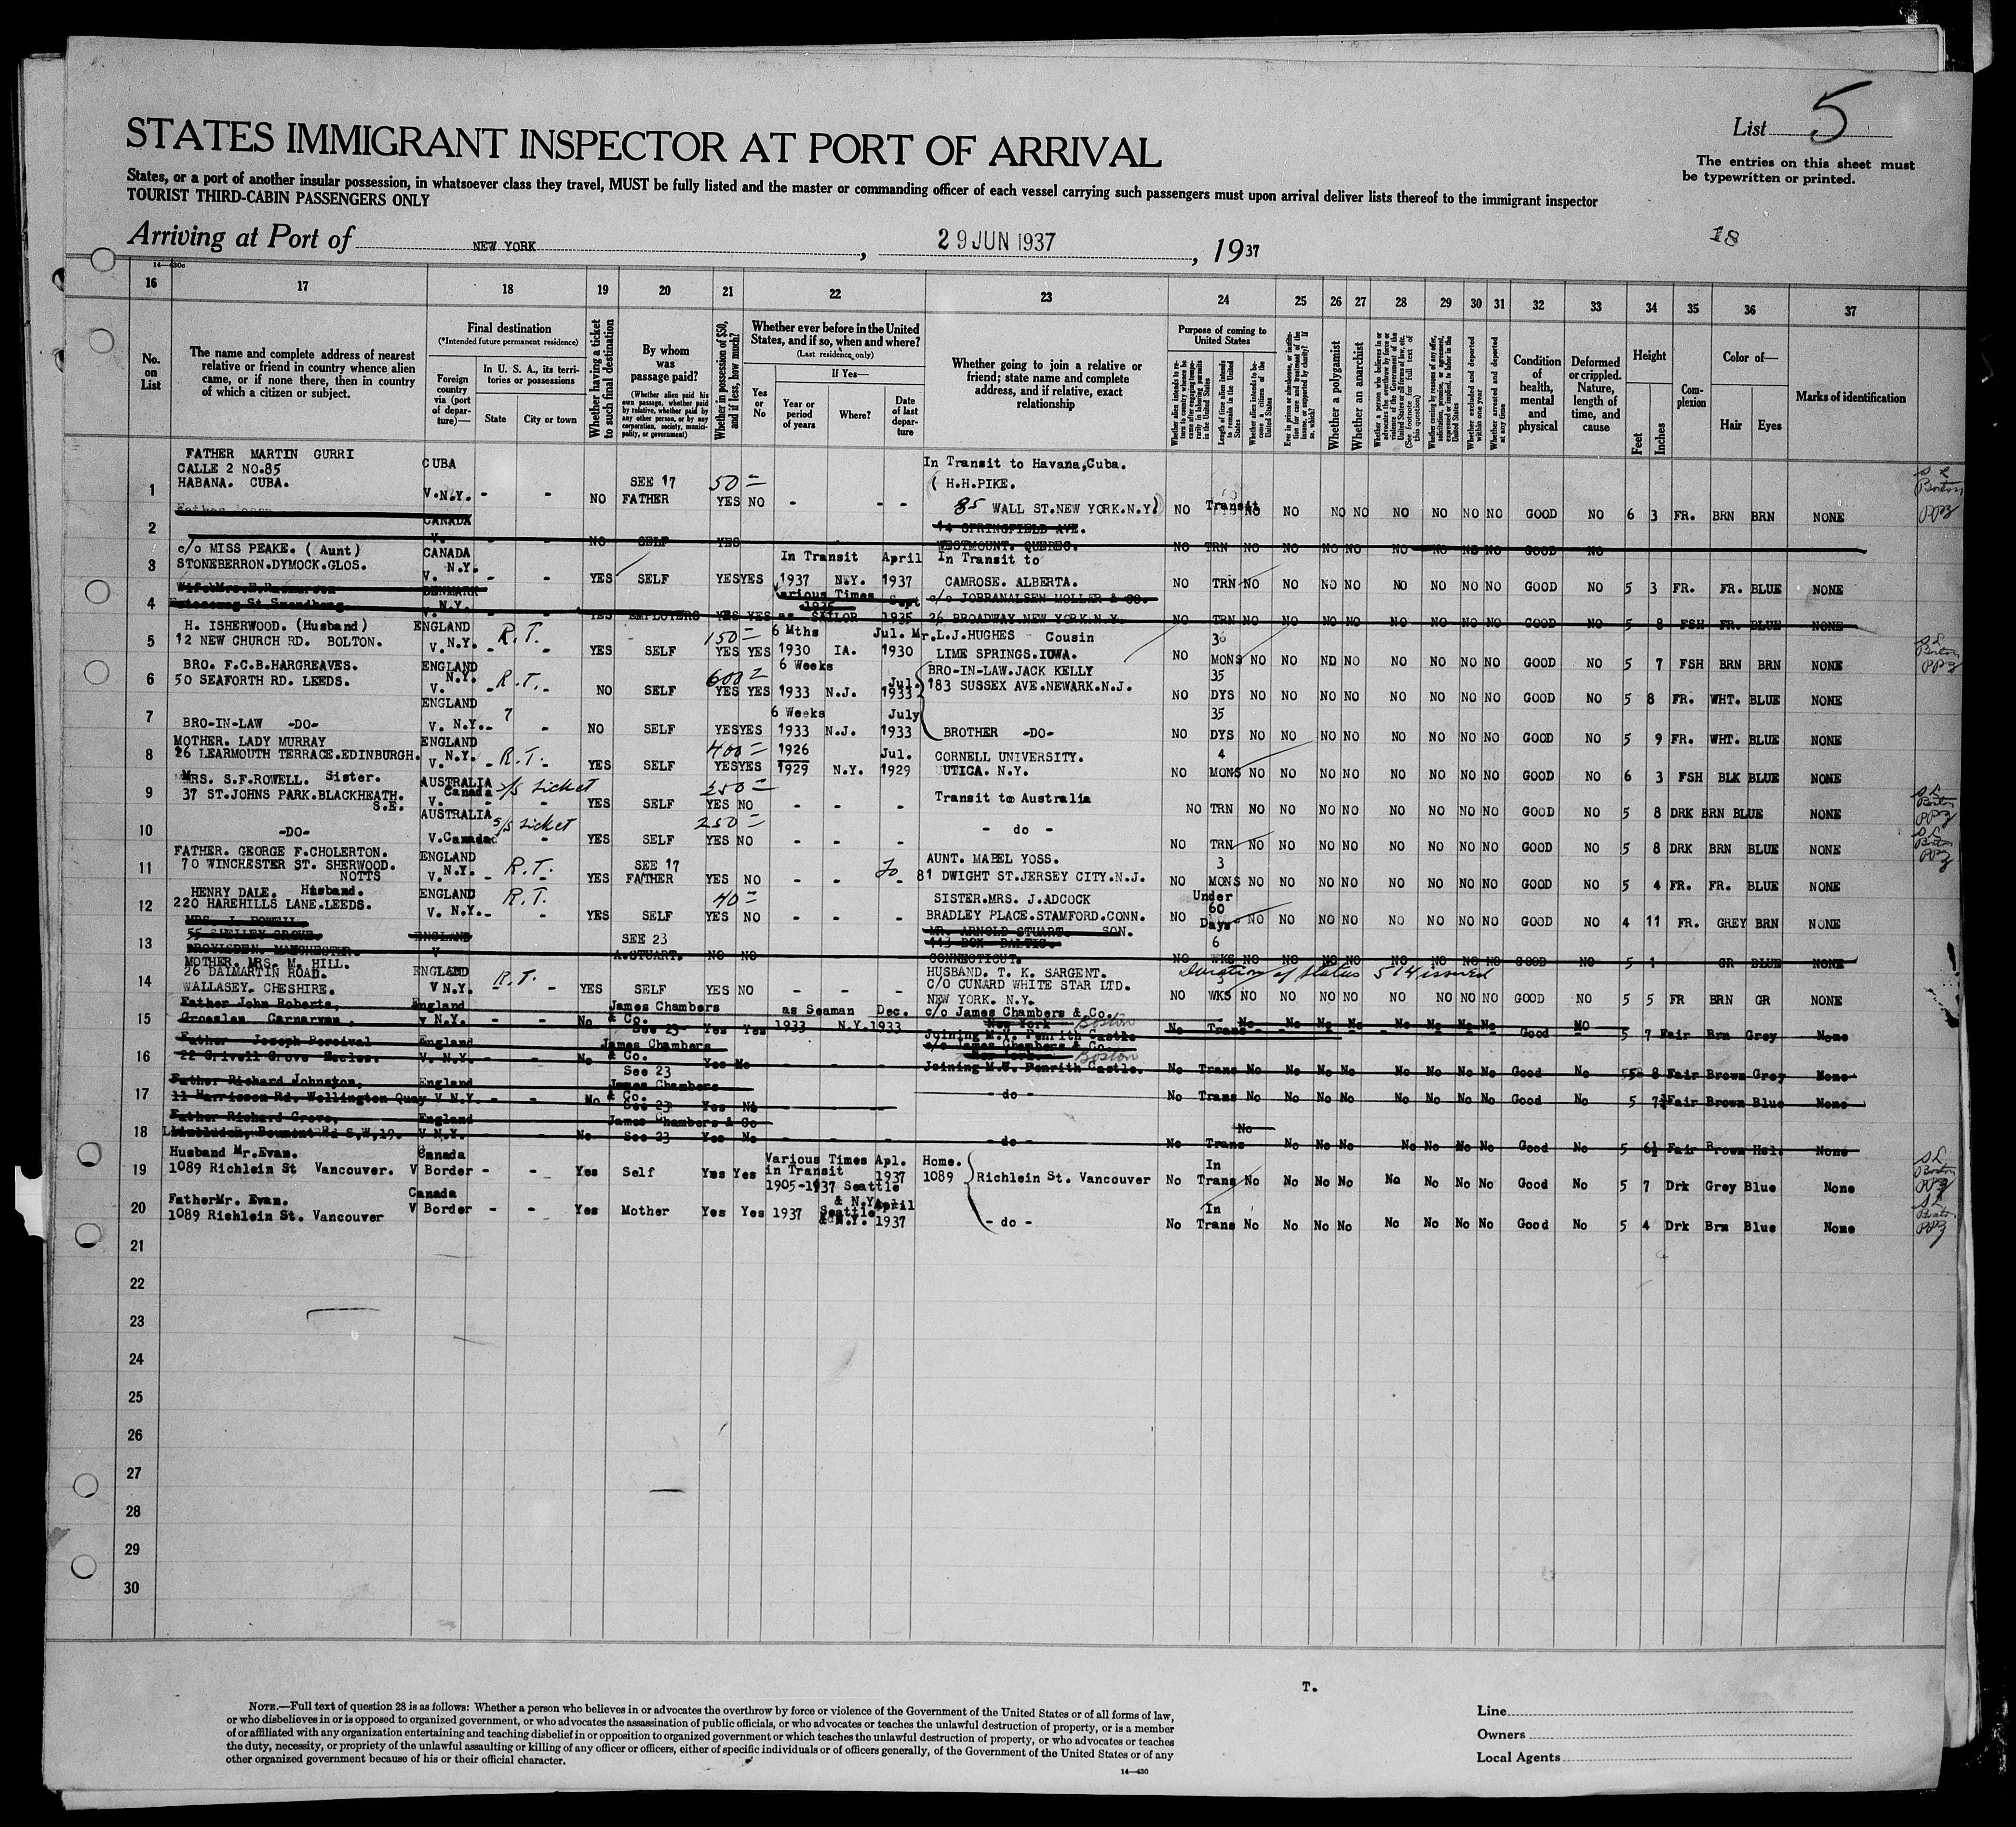 List 5
STATES IMMIGRANT INSPECTOR AT PORT OF ARRIVAL
The entries on this sheet must
be typewritten or printed.
States, or a port of another insular possession, in whatsoever class they travel, MUST be fully listed and the master or commanding officer of each vessel carrying such passengers must upon arrival deliver lists thereof to the immigrant inspector
TOURIST THIRD-CABIN PASSENGERS ONLY
Arriving at Port of NEW YORK, 29 JUN 1937, 1937
18
14—430c
16 17 18 19 20 21 22 23 24 25 26 27 28 29 30 31 32 33 34 35 36 37
No. on List
The name and complete address of nearest relative or friend in country whence alien came, or if none there, then in country of which a citizen or subject.
Final destination
(*Intended future permanent residence)
Foreign country via (port of departure)—
In U. S. A., its territories or possessions
State City or town
Whether having a ticket to such final destination
By whom was passage paid?
(Whether alien paid his own passage, whether paid by relative, whether paid by any other person, or by any corporation, society, municipality, or government)
Whether in possession of $50, and if less, how much?
Whether ever before in the United States, and if so, when and where?
(Last residence only)
Yes or No
If Yes—
Year or period of years
Where?
Date of last departure
Whether going to join a relative or friend; state name and complete address, and if relative, exact relationship
Purpose of coming to United States
Length of time alien intends to remain in the United States
Whether a polygamist
Whether an anarchist
Whether excluded and deported within one year
Whether arrested and deported at any time
Condition of health, mental and physical
Deformed or crippled. Nature, length of time, and cause
Height
Feet Inches
Complexion
Color of—
Hair Eyes
Marks of identification
FATHER MARTIN GURRI CUBA In Transit to Havana,Cuba.
CALLE 2 NO.85 SEE 17 50 ( H.H.PIKE.
1 HABANA. CUBA. V.N.Y. - - NO FATHER YES NO - - - 85 WALL ST.NEW YORK.N.Y) NO Transit NO NO NO NO NO NO NO NO GOOD NO 6 3 FR. BRN BRN NONE
CANADA 14 SPRINGFIELD AVE.
2 V. - - NO SELF YES WESTMOUNT. QUEBEC. NO TRN NO NO NO NO NO NO NO NO GOOD NO
c/o MISS PEAKE. ( Aunt) CANADA In Transit April In Transit to
3 STONEBERRON.DYMOCK.GLOS. N.Y. V. - - YES SELF YES YES 1937 N.Y. 1937 CAMROSE. ALBERTA. NO TRN NO NO NO NO NO NO NO NO GOOD NO 5 3 FR. FR. BLUE NONE
Wife Mrs.E.Rasmussen DENMARK Various Times Sept c/o JOBRANALSEN MOLLER & CO.
4 V. N.Y. - - YES EMPLOYERS YES YES 1935 as SAILOR 1935 26 BROADWAY.NEW YORK.N.Y. NO TRN NO NO NO NO NO NO NO NO GOOD NO 5 8 FSH FR. BLUE NONE
H. ISHERWOOD. (Husband) ENGLAND R.T. 150 6 Mths Jul. Mr.L.J.HUGHES Cousin 36
5 12 NEW CHURCH RD. BOLTON. V. N.Y. - - YES SELF YES YES 1930 IA. 1930 LIME SPRINGS.IOWA. NO MONS NO NO NO NO NO NO NO NO GOOD NO 5 7 FSH BRN BRN NONE
BRO. F.C.B.HARGREAVES. ENGLAND 600 6 Weeks Jul. BRO-IN-LAW.JACK KELLY 35
6 50 SEAFORTH RD. LEEDS. V. N.Y. - R.T. - NO SELF YES YES 1933 N.J. 1933 183 SUSSEX AVE.NEWARK.N.J. NO DYS NO NO NO NO NO NO NO NO GOOD NO 5 8 FR. WHT. BLUE NONE
ENGLAND 6 Weeks July 35
7 BRO-IN-LAW -DO- V. N.Y.- - NO SELF YES YES 1933 N.J. 1933 BROTHER -DO- NO DYS NO NO NO NO NO NO NO NO GOOD NO 5 9 FR. WHT. BLUE NONE
MOTHER. LADY MURRAY ENGLAND 400 1926 Jul. CORNELL UNIVERSITY. 4
8 26 LEARMOUTH TERRACE.EDINBURGH. V. N.Y. - R.T. - YES SELF YES YES 1929 N.Y. 1929 UTICA. N.Y. NO MONS NO NO NO NO NO NO NO NO GOOD NO 6 3 FSH BLK BLUE NONE
MRS. S.F.ROWELL. Sister. AUSTRALIA S/S ticket 250
9 37 ST.JOHNS PARK.BLACKHEATH. S.E. V. Canada - - YES SELF YES NO - - - Transit to Australia NO TRN NO NO NO NO NO NO NO NO GOOD NO 5 8 DRK BRN BLUE NONE
AUSTRALIA S/S ticket 250
10 -DO- V.Canada - YES SELF YES NO - - - - do - NO TRN NO NO NO NO NO NO NO NO GOOD NO 5 8 DRK BRN BLUE NONE
FATHER. GEORGE F.CHOLERTON. ENGLAND SEE 17 AUNT. MABEL YOSS. 3
11 70 WINCHESTER ST. SHERWOOD. NOTTS V. N.Y. - R.T. - YES FATHER YES NO - - - 81 DWIGHT ST.JERSEY CITY.N.J. NO MONS NO NO NO NO NO NO NO NO GOOD NO 5 4 FR. FR. BLUE NONE
HENRY DALE. Husband. ENGLAND R.T. 40 SISTER.MRS. J.ADCOCK Under 60
12 220 HAREHILLS LANE.LEEDS. V. N.Y.- - YES SELF YES NO - - - BRADLEY PLACE.STAMFORD.CONN. NO Days NO NO NO NO NO NO NO NO GOOD NO 4 11 FR. GREY BRN NONE
55 SHELLEY GROVE. ENGLAND SEE 23 MR. ARNOLD STUART. SON. 6
13 DROYLSDEN. MANCHESTER. V A.STUART. NO NO 113 BOX BALTIC. CONNECTICUT. NO WKS NO NO NO NO NO NO NO NO GOOD NO 5 1 GR BLUE NONE
MOTHER. MRS. M. HILL. HUSBAND. T. K. SARGENT. Duration of status 514 issued
26 DALMARTIN ROAD. ENGLAND R.T. C/O CUNARD WHITE STAR LTD.
14 WALLASEY. CHESHIRE. V N.Y. - - YES SELF YES NO - - - NEW YORK. N.Y. NO WKS NO NO NO NO NO NO NO NO GOOD NO 5 5 FR BRN GR NONE
Father John Roberts, England James Chambers as Seaman Dec. c/o James Chambers & Co.
15 Groeslan Carnarvan, V N.Y. - - No & Co. See 23 Yes Yes 1933 N.Y. 1933 New York Boston Joining M.V. Penrith Castle No Trans No No No No No No No No Good NO 5 7 Fair Brn Grey None
Father Joseph Percival England James Chambers c/o James Chambers & Co.
16 22 Crivell Grove Eccles. V. N.Y. - - No & Co. See 23 Yes No - - - New York. Boston Joining M.V. Penrith Castle. No Trans No No No No No No No No Good No 5 8 Fair Brown Grey None
Father Richard Johnston, England James Chambers
17 11 Harrisson Rd. Wellington Quay V N.Y. - - No & Co. See 23 Yes No - - - - do - No Trans No No No No No No No No Good No 5 7½ Fair Brown Blue None
Father Richard Grove, England James Chambers & Co
18 V N.Y. - - No See 23 Yes No - - - - do - No Trans No No No No No No No No Good No 5 6½ Fair Brown Hzl. None
Husband Mr.Evan. Canada Various Times Apl. Home. In
19 1089 Richlein St Vancouver. V Border - - Yes Self Yes Yes in Transit 1905-1937 Seattle & N.Y. 1937 1089 Richlein St. Vancouver No Trans No No No No No No No No Good No 5 7 Drk Grey Blue None
Father Mr. Evan. Canada April In
20 1089 Richlein St. Vancouver V Border - - Yes Mother Yes Yes 1937 Seattle & N.Y. 1937 - do - No Trans No No No No No No No No Good No 5 4 Drk Brn Blue None
21
22
23
24
25
26
27
28
29
30
T.
NOTE.—Full text of question 28 is as follows: Whether a person who believes in or advocates the overthrow by force or violence of the Government of the United States or of all forms of law,
or who disbelieves in or is opposed to organized government, or who advocates the assassination of public officials, or who advocates or teaches the unlawful destruction of property, or is a member
of or affiliated with any organization entertaining and teaching disbelief in or opposition to organized government or which teaches the unlawful destruction of property, or who advocates or teaches
the duty, necessity, or propriety of the unlawful assaulting or killing of any officer or officers, either of specific individuals or of officers generally, of the Government of the United States or of any
other organized government because of his or their official character.
14—430
Line
Owners
Local Agents